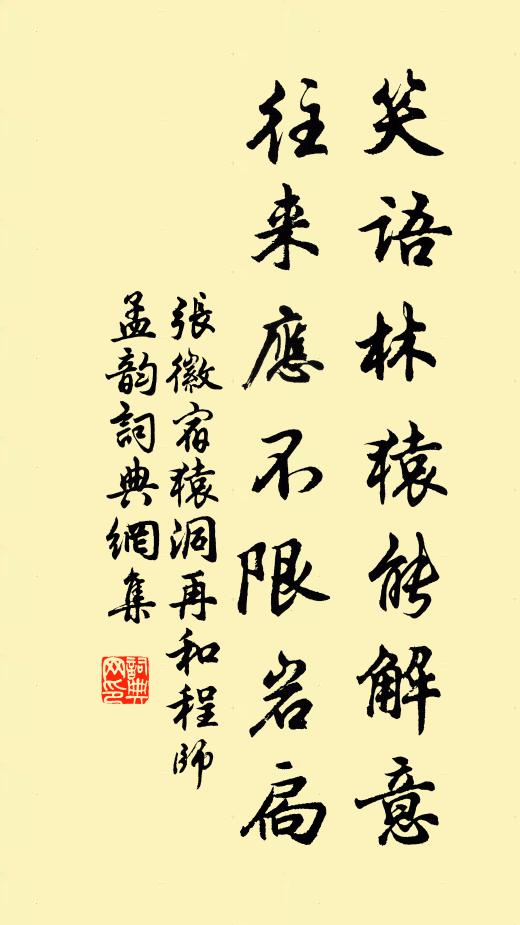 笑語林猿能解意
往来應不限岩扃
張徽宿猿洞再和程師
孟韵詞典網集
詞典网印